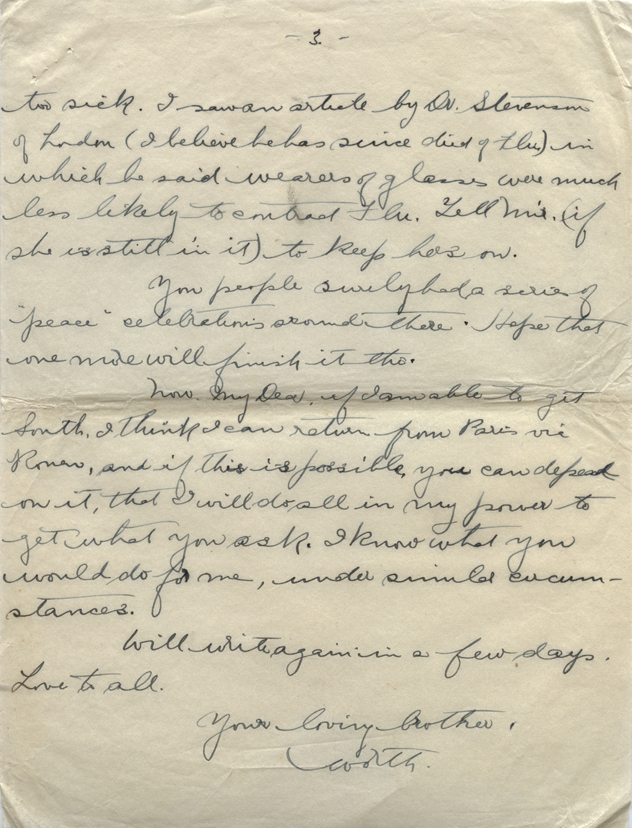 - 3. -
too sick. I saw an article by Dr. Stevenson
of London (I believe he has since died of Flu) in
which he said wearers of glasses were much
less likely to contract Flu. Tell Mis. (if
she is still in it) to keep hers on.
You people surely had a series of
"peace" celebrations around there. Hope that
one more will finish it tho.
Now, my Dea, if I am able to get
South, I think I can return from Paris via
Rouen, and if this is possible, you can depend
on it, that I will do all in my power to
get what you ask. I know what you
would do for me, under similar circum-
stances.
Will write again in a few days.
Love to all.
Your loving brother,
Worth.